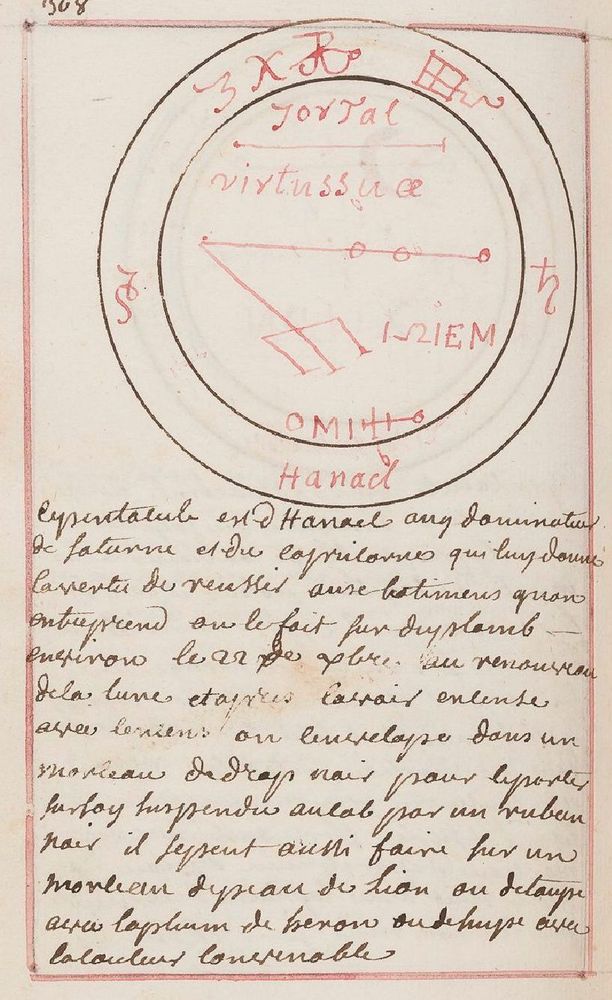 308
Jortal
virtussuæ
IEM
OMI
Hanael
Cepentacule est d Hanael ang dominateur
de saturne et du capricorne qui luy donne
la vertu de reussir aux batimens quon
entreprend on le fait sur du plomb
environ le 22 de xbre. au renouveau
de la lune et apres lavoir encense
avec lencens on lenvelope dans un
morceau de drap noir pour le porter
sur soy suspendu au col par un ruban
noir il sepeut aussi faire sur un
morceau de peau de lion ou de taupe
avec la plum de heron ou de hupe avec
la couleur convenable